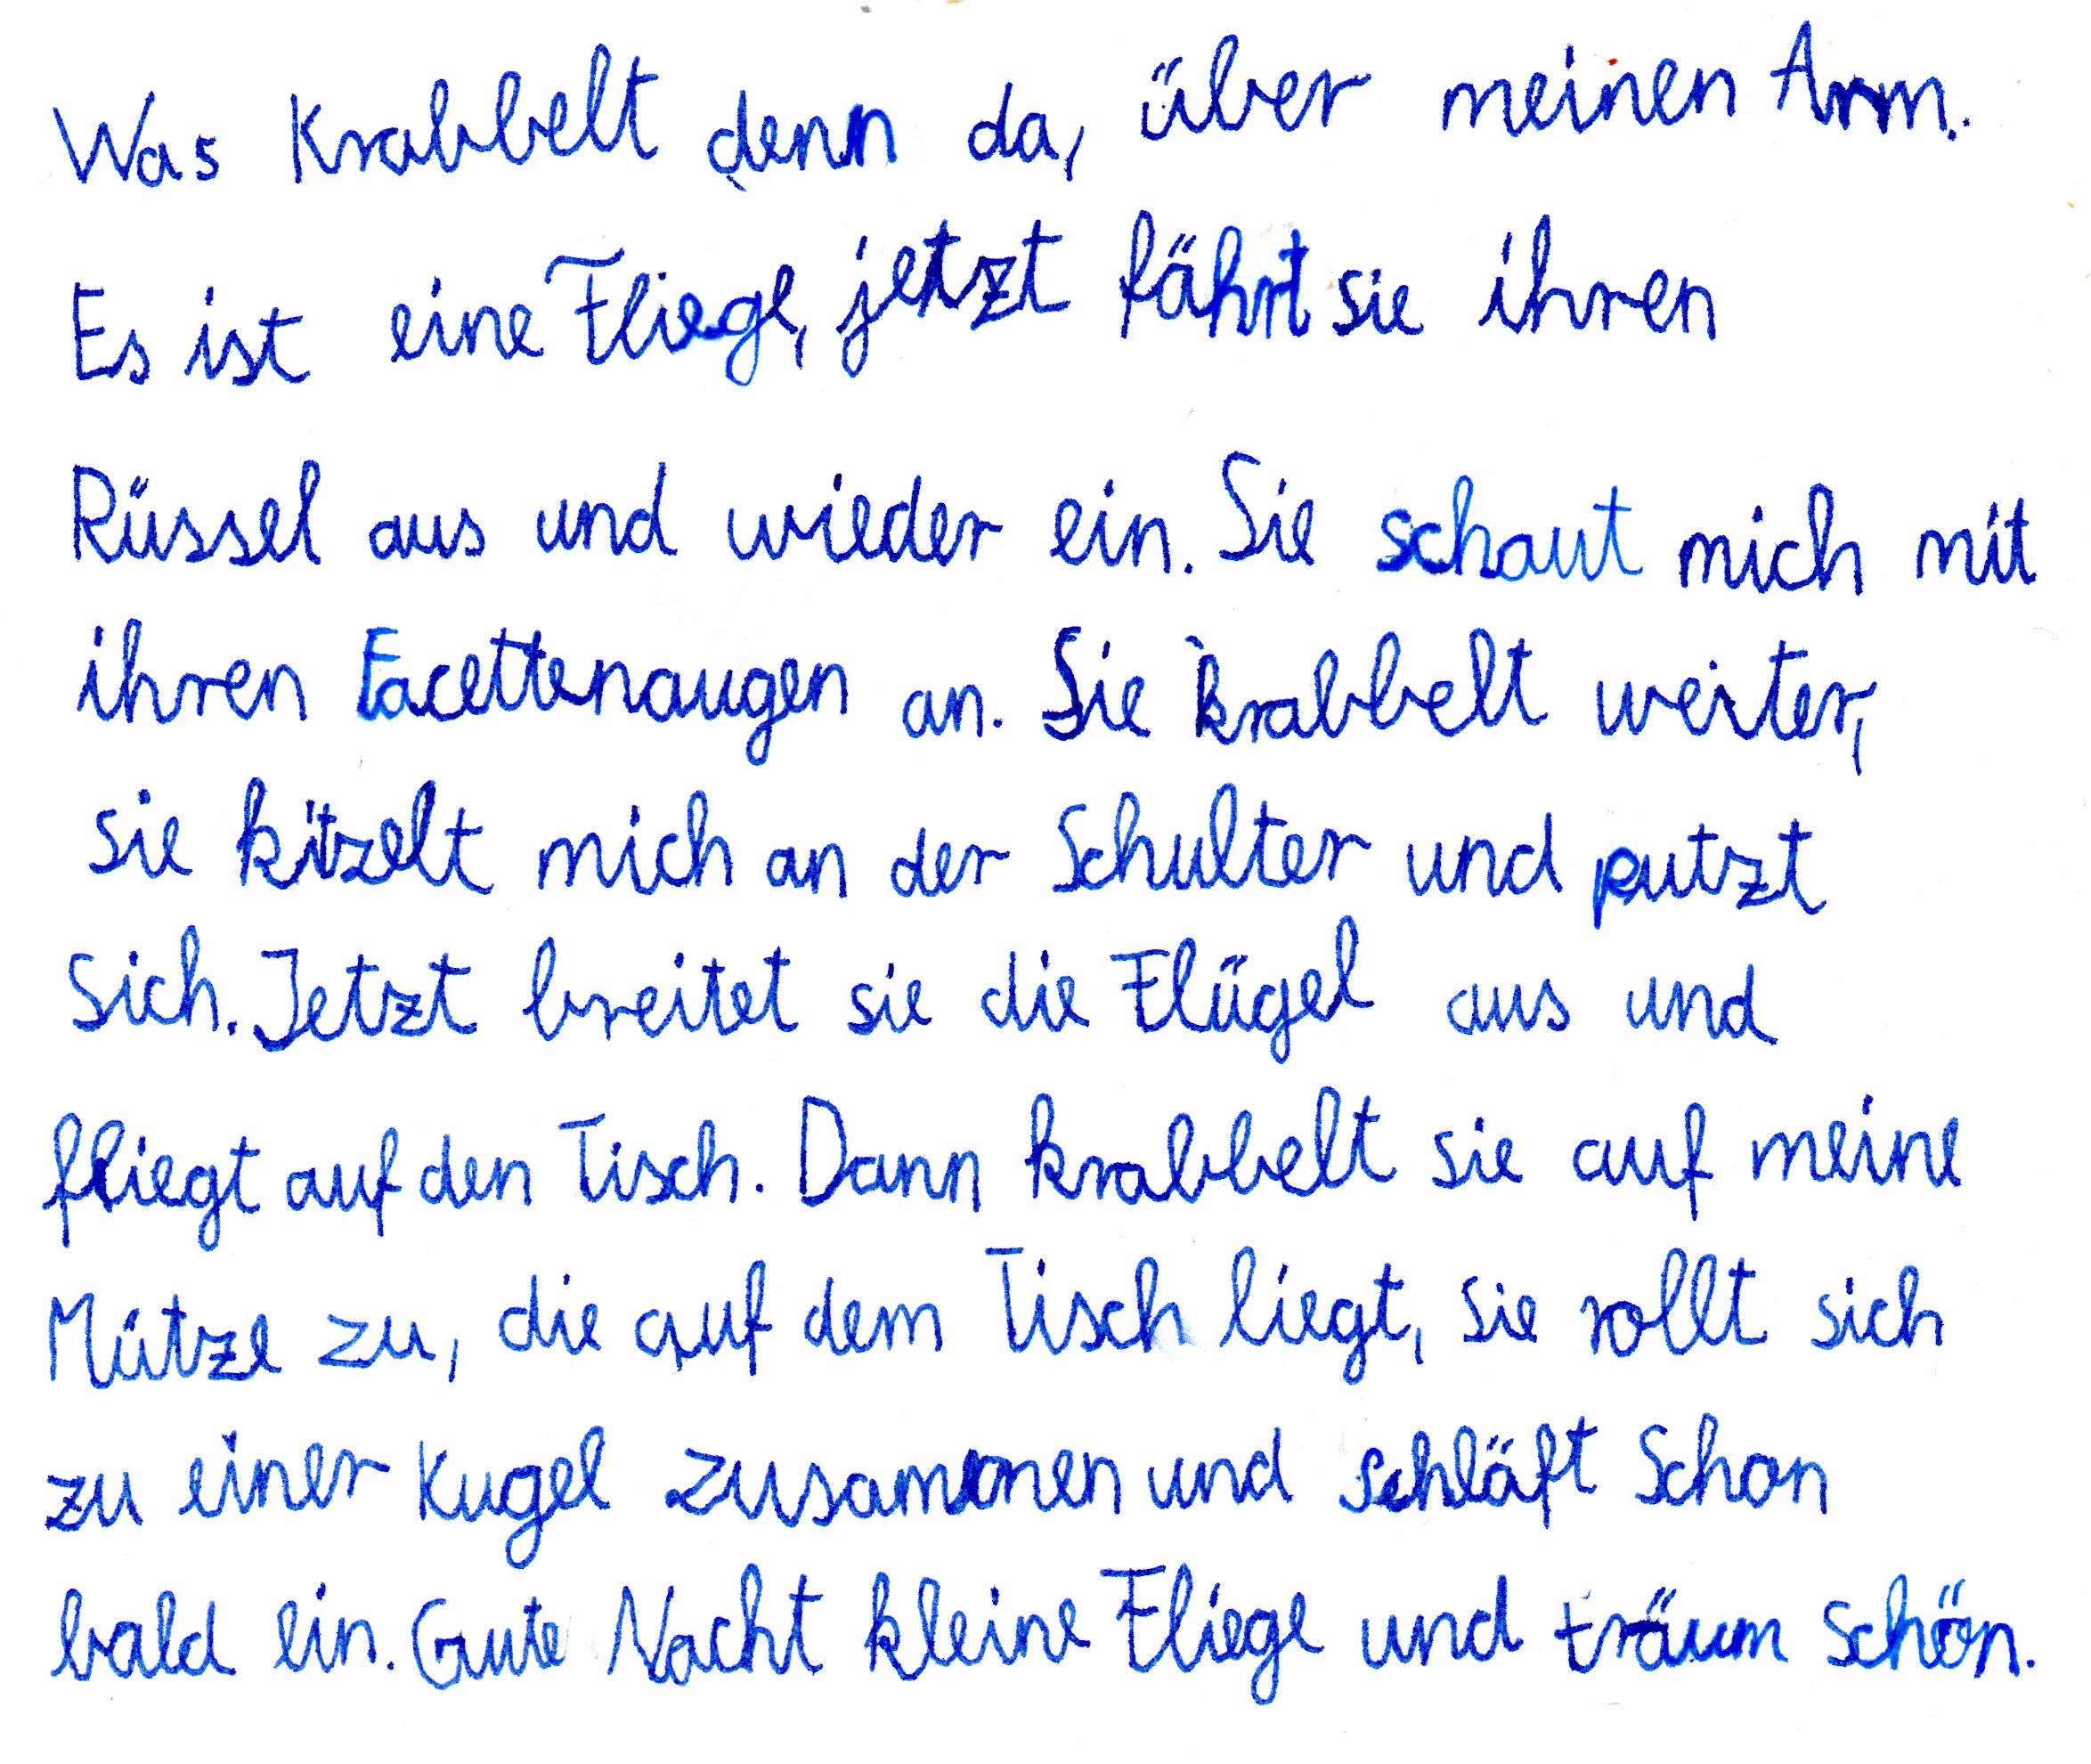 Was Krabbelt denn da, über meinen Arm.
Es ist eine Fliege, jetzt fährt sie ihren
Rüssel aus und wieder ein. Sie schaut mich mit
ihren Facettenaugen an. Sie krabbelt weiter,
sie kitzelt mich an der Schulter und putzt
sich. Jetzt breitet sie die Flügel aus und
fliegt auf den Tisch. Dann krabbelt sie auf meine
Mütze zu, die auf dem Tisch liegt, sie rollt sich
zu einer Kugel zusammen und schläft schon
bald ein. Gute Nacht kleine Fliege und träum schön.